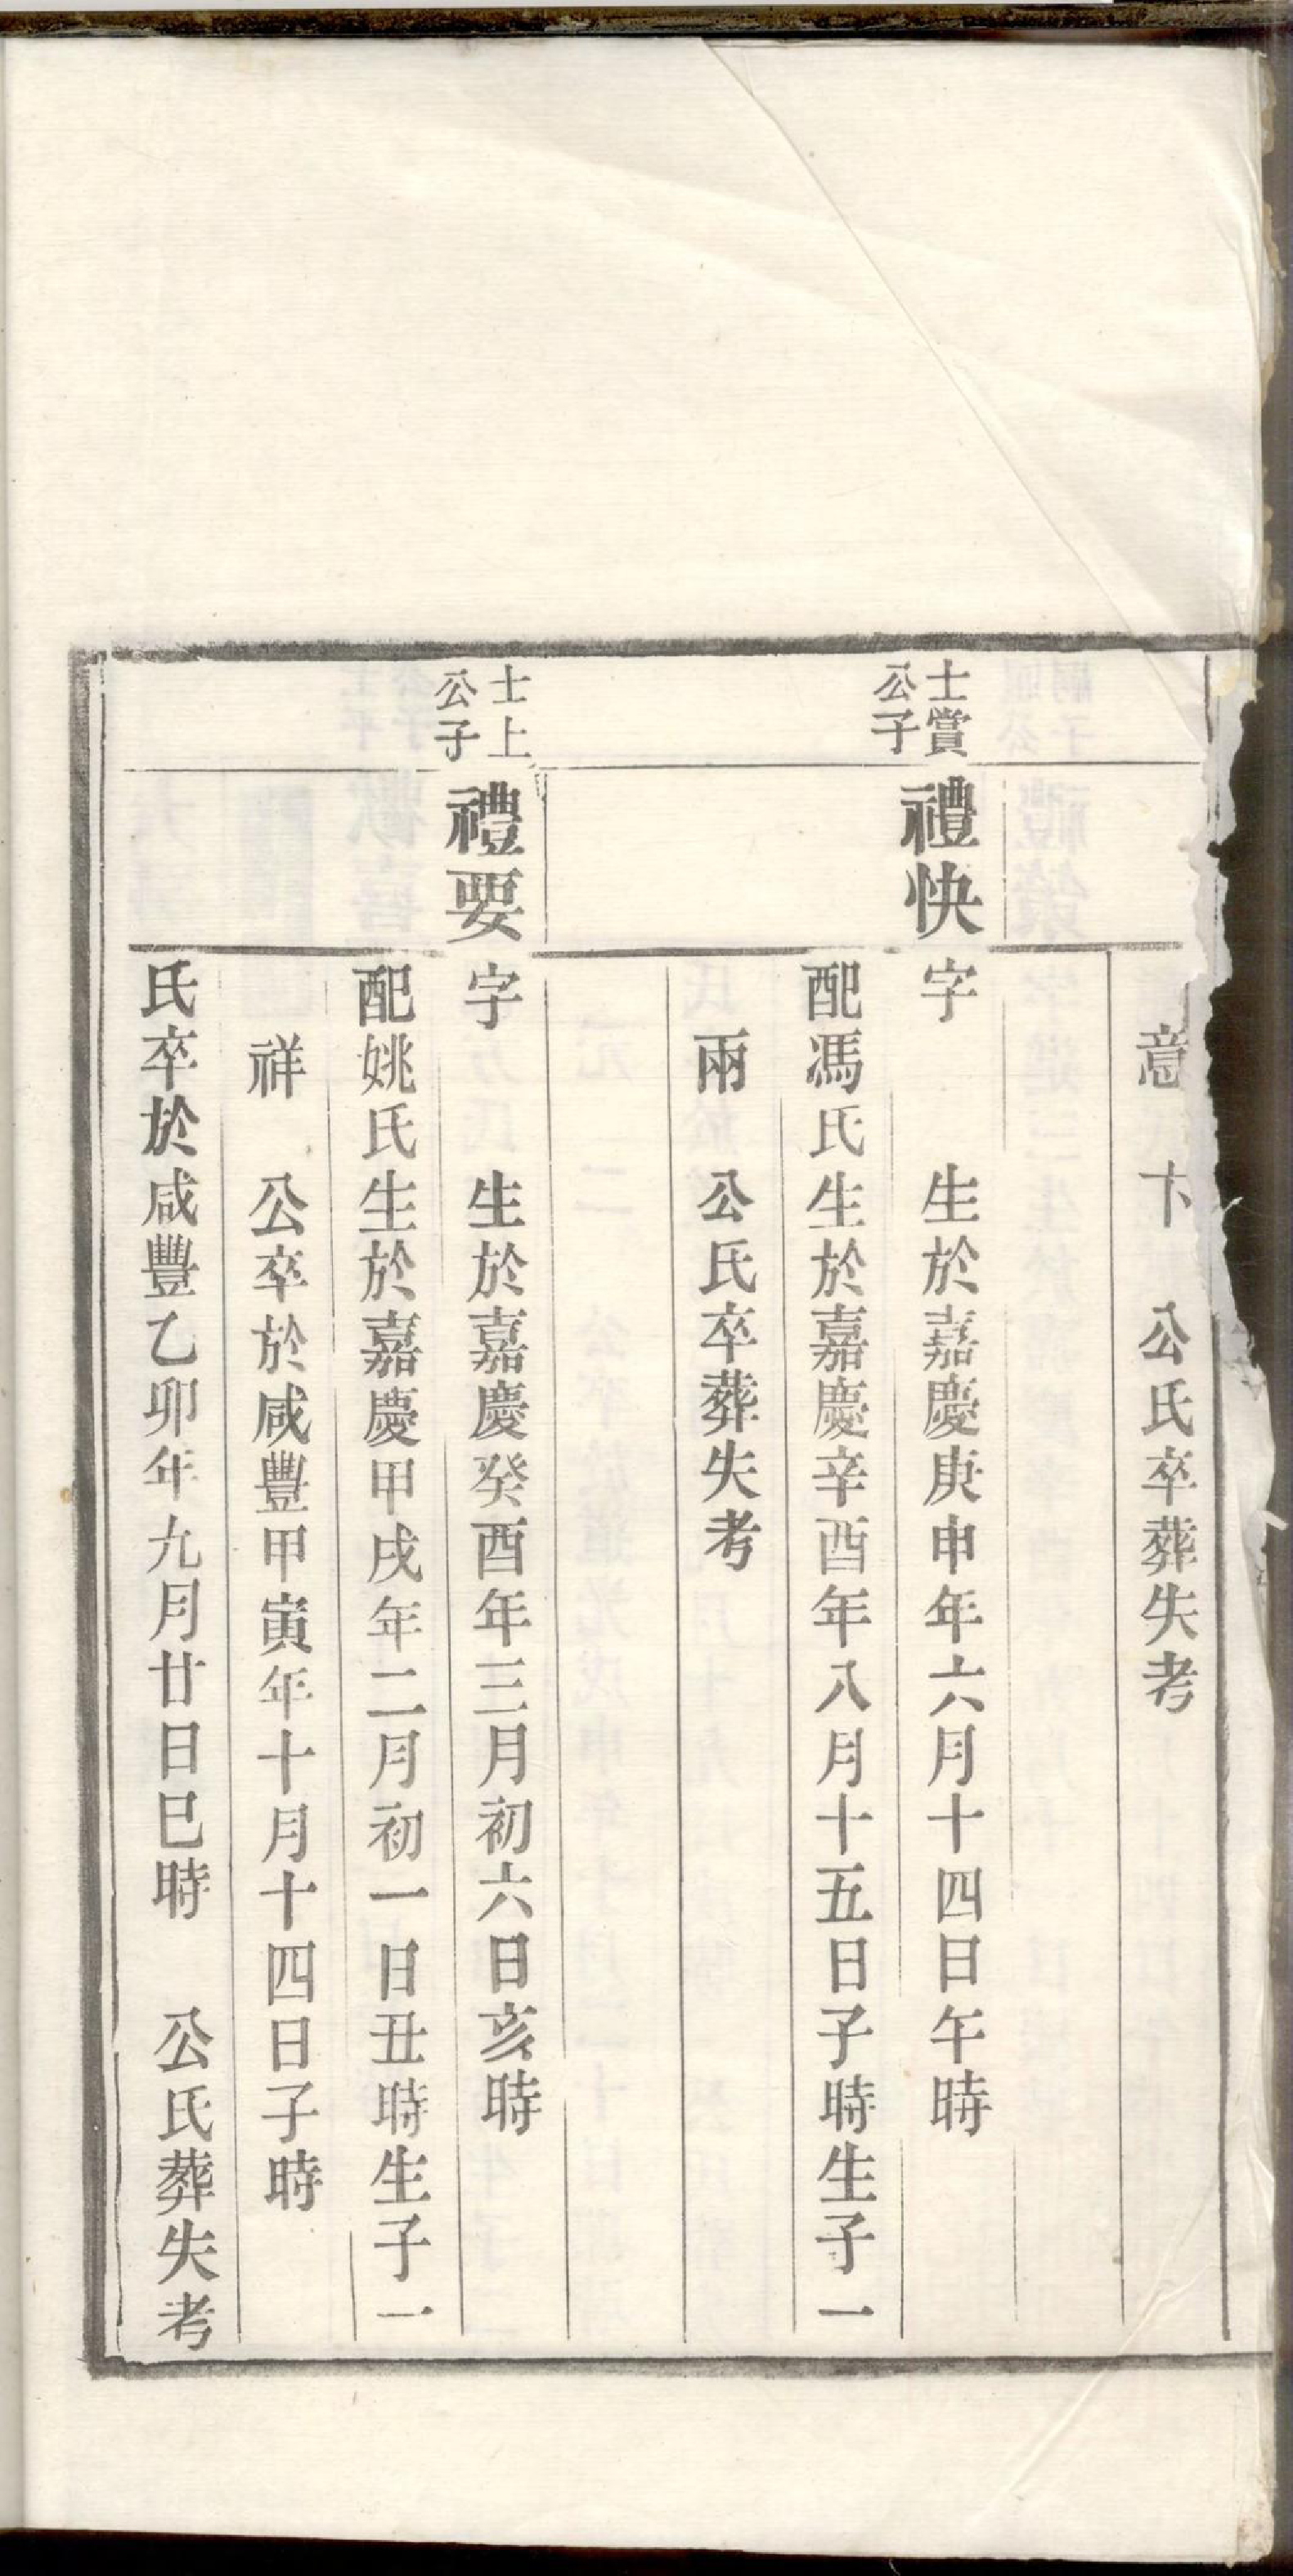 意　卞　公氏卒葬失考
士賞公子
禮快
字　生於嘉慶庚申年六月十四日午時
配馮氏生於嘉慶辛酉年八月十五日子時生子一
兩　公氏卒葬失考
士上公子
禮要
字　生於嘉慶癸酉年三月初六日亥時
配姚氏生於嘉慶甲戌年二月初一日丑時生子一
祥　公卒於咸豐甲寅年十月十四日子時
氏卒於咸豐乙卯年九月廿日巳時　公氏葬失考